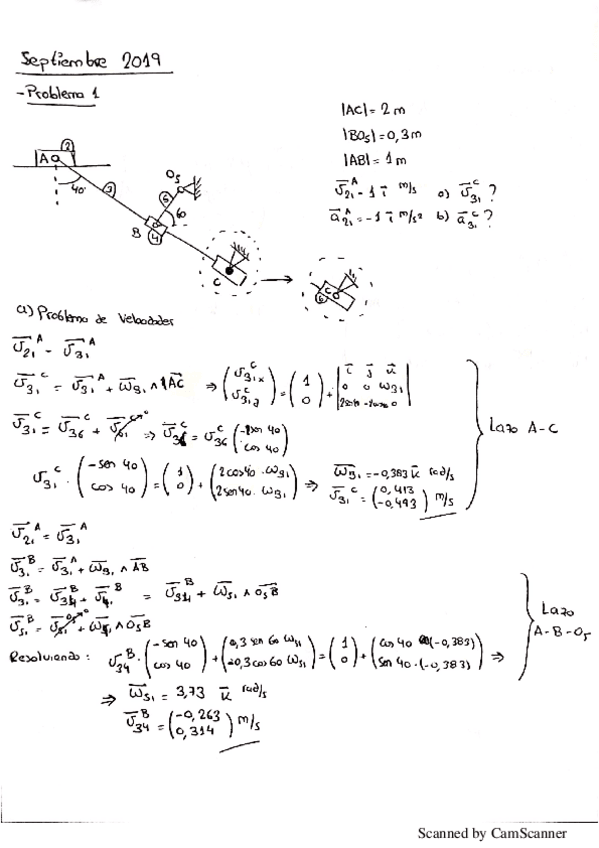 Septiembre 2019
- Problema 1
|AC| = 2 m
|BO₅| = 0,3 m
|AB| = 1 m
v̄₂₁ᴬ = 1 ī m/s a) v̄₃₁ᶜ ?
ā₂₁ᴬ = -1 ī m/s² b) ā₃₁ᶜ ?
A 2
O₅
40 3 5
60
B 4
C
C 6
a) Problema de Velocidades
v̄₂₁ᴬ = v̄₃₁ᴬ
v̄₃₁ᶜ = v̄₃₁ᴬ + ω̄₃₁ ∧ AC ⇒ (v₃₁ₓᶜ v₃₁ᵧᶜ) = (1 0) + | ī j̄ k̄ 0 0 ω₃₁ 2sen40 -2cos40 0 |
v̄₃₁ᶜ = v̄₃₆ᶜ + v̄₆₁ᶜ⁰ ⇒ v̄₃₆ᶜ = v₃₆ᶜ (-sen 40 cos 40)
Lazo A-C
v₃₁ᶜ · (-sen 40 cos 40) = (1 0) + (2cos40 · ω₃₁ 2sen40 · ω₃₁) ⇒ ω̄₃₁ = -0,383 k̄ rad/s
v̄₃₁ᶜ = (0,413 -0,493) m/s
v̄₂₁ᴬ = v̄₃₁ᴬ
v̄₃₁ᴮ = v̄₃₁ᴬ + ω̄₃₁ ∧ AB
v̄₃₁ᴮ = v̄₃₄ᴮ + v̄₄₁ᴮ = v̄₃₄ᴮ + ω̄₅₁ ∧ O₅B
v̄₅₁ᴮ = v̄₅₁⁰ + ω̄₅₁ ∧ O₅B
Lazo
A-B-O₅
Resolviendo : v₃₄ᴮ · (-sen 40 cos 40) + (0,3 sen 60 ω₅₁ -0,3 cos 60 ω₅₁) = (1 0) + (cos 40 (-0,383) sen 40 · (-0,383)) ⇒
⇒ ω̄₅₁ = 3,73 k̄ rad/s
v̄₃₄ᴮ = (-0,263 0,314) m/s
Scanned by CamScanner